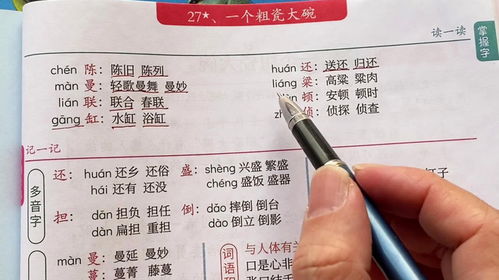 27*、一个粗瓷大碗
读一读
掌握字
chén 陈：陈旧 陈列
huán 还：送还 归还
màn 曼：轻歌曼舞 曼妙
liáng 粱：高粱 粱肉
lián 联：联合 春联
顿：安顿 顿时
gāng 缸：水缸 浴缸
侦：侦探 侦查
记一记
多音字
还：huán 还乡 还俗
hái 还有 还没
盛：shèng 兴盛 繁盛
chéng 盛饭 盛器
担：dān 担负 担任
dàn 扁担 重担
倒：dǎo 摔倒 倒台
dào 倒立 倒影
màn 曼：曼延 曼妙
蔓：蔓菁 藤蔓
词语
与人体有
口是心非